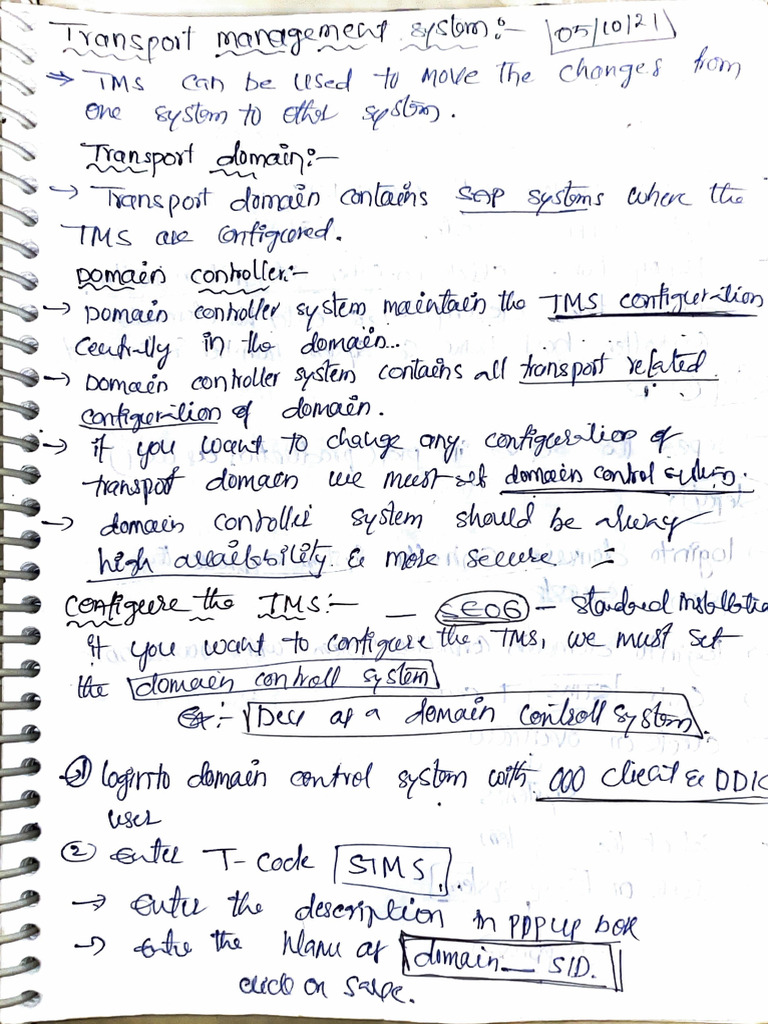 Transport management system:- 05/10/21
⇒ TMS can be used to move the changes from
one system to other system.
Transport domain:-
→ Transport domain contains SAP systems where the
TMS are configured.
Domain controller:-
→ Domain controller system maintain the TMS configuration
centrally in the domain..
→ Domain controller system contains all transport related
configuration of domain.
→ if you want to change any configuration of
transport domain we must set domain control
→ domain controller system should be always
high availability & more secure.
Configure the TMS:- — SE06 - Standard Installation
if you want to configure the TMS, we must set
the domain controll system
Ex:- Dev as a domain controll system.
① loginto domain control system with 000 client & DDIC
user
② Enter T-code STMS.
→ Enter the description in POPUP box
→ Enter the Name of domain_SID.
click on save.